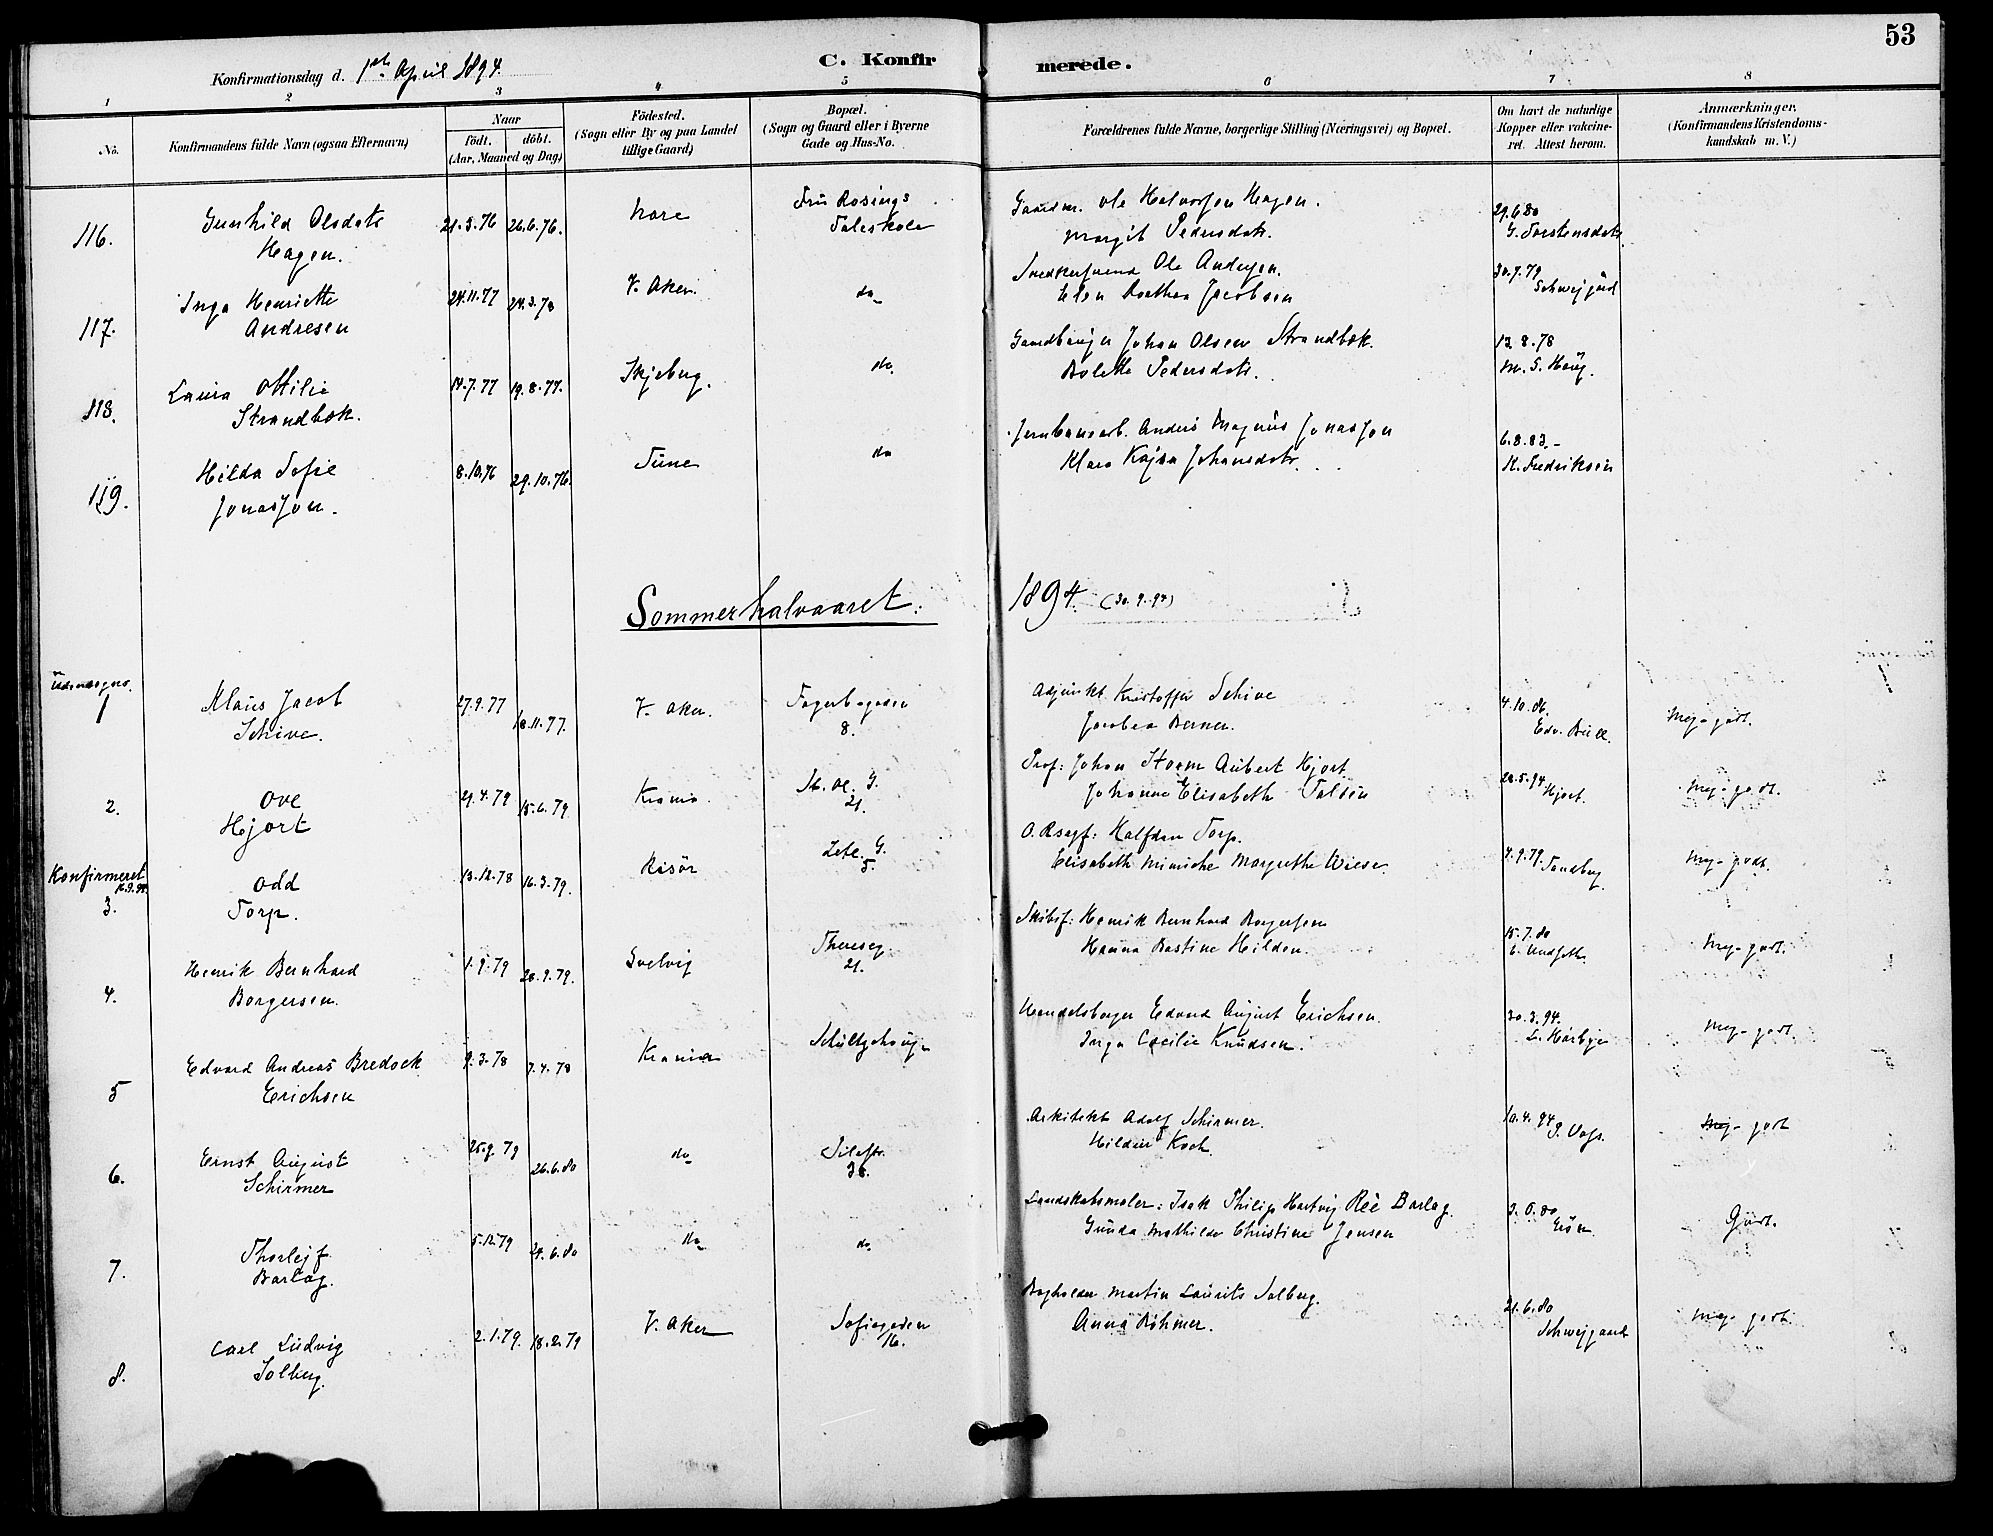 53
Konfirmationsdag d. 1ste April 1894.
C. Konfirmerede.
1 2 3 4 5 6 7 8
No. Konfirmandens fulde Navn (ogsaa Efternavn)
Naar
födt. döbt.
(Aar, Maaned og Dag)
Födested.
(Sogn eller By og paa Landet
tillige Gaard)
Bopæl.
(Sogn og Gaard eller i Byerne
Gade og Hus-No.
Forældrenes fulde Navne, borgerlige Stilling (Næringsvei) og Bopæl.
Om havt de naturlige
Kopper eller vakcine-
ret. Attest herom.
Anmærkninger.
(Konfirmandens Kristendoms-
kundskab m. V.)
116. Gunhild Olsdatr 21.5.76 26.6.76. Nore Fru Rosings Gaardm. Ole Halvorsen Hagen. 29.6.80
Hagen. Taleskole Margit Pedersdatr. G. Torstensdatr
117. Inga Henriette 24.11.77 24.3.78 V. Aker. do Ole Andersen. 30.7.79
Andresen Elen Dorthea Jacobsen Schweigaard
118. Laura Ottilie 14.7.77 19.8.77. Skjeberg. do Gaardbruger Johan Olsen Strandbæk. 13.8.78
Strandbæk. Bolette Pedersdatr. M. S. Haug.
119. Hilda Sofie 8.10.76 29.10.76. Tune do Jernbanearb. Anders Magnus Jonasson 6.8.83.
Jonasson. Klara Kajsa Johansdatr. K. Fredriksen
Sommerhalvaaret: 1894. (30.9.94)
Udensogns.
1 Klaus Jacob 27.9.77 18.11.77. V. Aker. Fagerborgaden Adjunkt Kristoffer Schive 4.10.86. Meg. godt.
Schive. 8. Jacobea Berner. Edv. Bull.
2. Ove 21.4.79 15.6.79. Krania. St. Ol. G. Prof: Johan Storm Aubert Hjort 28.5.94 Hjort. Meg. godt.
Hjort 21. Johanne Elisabeth Falsen
Konfirmeret
3. Odd 13.12.78 16.3.79. Risör G. O. Rsagf: Halfdan Torp. 4.9.79 Sandberg. Meg. godt.
Torp. 5. Elisabeth Minniche Margrethe Wiese.
4. Henrik Bernhard 1.9.79 28.9.79. Svelvig Thereseg. Skibsf: Henrik Bernhard Borgersen 15.7.80 Meg. godt.
Borgersen. 21. Hanna Bastine Hilden.
5 Edvard Andreas Bredock 9.3.78 7.4.78 Krania Schultzehaugen Handelsborger Edvard August Erichsen. 30.3.94. Meg. godt.
Erichsen Inga Cecilie Knudsen. L. Harbye
6. Ernst August 25.9.79 26.6.80 do Pilestr. Arkitekt Adolf Schirmer. 10.4.94 P. Voss. Meg. godt
Schirmer 38. Hildur Koch.
7. Thorleif 5.12.79 24.6.80 do do Landskabsmaler: Isak Philip Hartvig Rée Barlag. 3.6.80 Godt.
Barlag. Gunda Mathilde Christine Jensen
8. Carl Ludvig 2.1.79. 18.2.79 V. Aker Sofiegaden Bogholder Martin Laurits Solberg. 21.6.80 Meg. godt.
Solberg. 16. Anna Böhmer. Schweigaard